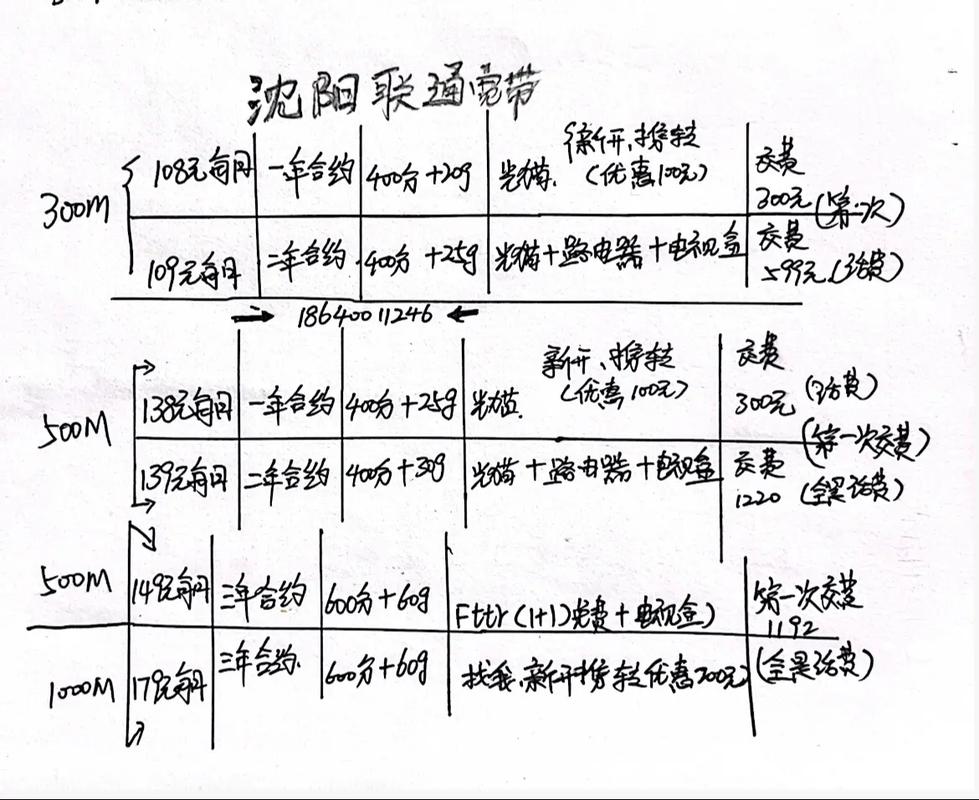 沈阳联通宽带
300M 108元每月 一年合约 400分+20g 光猫. 新开,携转(优惠100元) 交费300元(第一次)
109元每月 二年合约 400分+25g 光猫+路由器+电视盒 交费599元(话费)
→ 18640011246 ←
500M 138元每月 一年合约 400分+25g 光猫. 新开、携转(优惠100元) 交费300元(话费)
(第一次交费)
139元每月 二年合约 400分+30g 光猫+路由器+电视盒 交费1220(全是话费)
500M 149元每月 三年合约 600分+60g Fttr(1+1)免费+电视盒) 第一次交费1192
1000M 179元每月 三年合约. 600分+60g 找我、新开携转优惠200元 (全是话费)